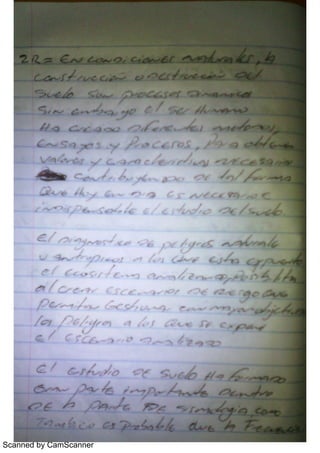 2R= En condiciones naturales, la
construcción o destrucción del
suelo son procesos dinamicos
sin embargo el ser Humano
Ha creado diferentes metodos,
Ensayos y Procesos, Para obtener
valores y caracteristicas necesarias
contribuyendo de tal forma
Que Hoy en dia es necesario e
indispensable el estudio del suelo.
El Diagnostico de peligros naturales
u antropicos a los que esta expuesto
el ecosistema analizar posibilita
al crear escenarios de riesgo que
permitan Gestionar con mayor objetiv
los peligros a los que se expone
el escenario analizado
El estudio de suelo Ha formado
una parte importante dentro
de la parte de sismologia como
Tambien es probable que la Frecuencia
Scanned by CamScanner